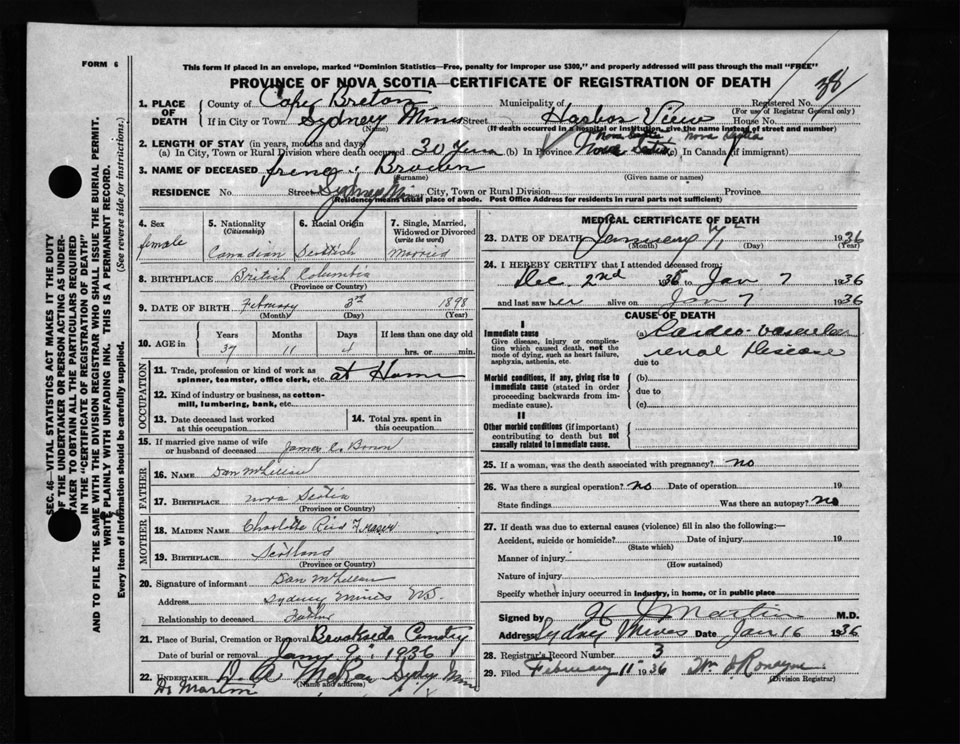 FORM 6
This form if placed in an envelope, marked "Dominion Statistics—Free, penalty for improper use $300," and properly addressed will pass through the mail "FREE"
PROVINCE OF NOVA SCOTIA—CERTIFICATE OF REGISTRATION OF DEATH
38
1. PLACE OF DEATH
County of Cape Breton Municipality of Registered No.
(For use of Registrar General only)
If in City or Town Sydney Mines Street Harbor View House No.
(Name) (If death occurred in a hospital or institution, give name instead of street and number)
2. LENGTH OF STAY (in years, months and days)
(a) In City, Town or Rural Division where death occurred 30 Years (b) In Province Nova Scotia (c) In Canada (if immigrant) Nova Scotia
3. NAME OF DECEASED Irene
(Surname) (Given name or names)
RESIDENCE No. Street Sydney Mines City, Town or Rural Division Province
(Residence means usual place of abode. Post Office Address for residents in rural parts not sufficient)
4. Sex female
5. Nationality (Citizenship) Canadian
6. Racial Origin Scottish
7. Single, Married, Widowed or Divorced (write the word) Married
8. BIRTHPLACE British Columbia
(Province or Country)
9. DATE OF BIRTH February 3rd 1898
(Month) (Day) (Year)
10. AGE in Years Months Days If less than one day old
37 11 4 hrs. or min.
OCCUPATION
11. Trade, profession or kind of work as spinner, teamster, office clerk, etc. at Home
12. Kind of industry or business, as cotton-mill, lumbering, bank, etc.
13. Date deceased last worked at this occupation
14. Total yrs. spent in this occupation
15. If married give name of wife or husband of deceased James C.
FATHER
16. NAME Dan McLellan
17. BIRTHPLACE Nova Scotia
(Province or Country)
MOTHER
18. MAIDEN NAME Charlotte Reid Fraser
19. BIRTHPLACE Scotland
(Province or Country)
20. Signature of informant Dan McLellan
Address Sydney Mines N.S.
Relationship to deceased Father
21. Place of Burial, Cremation or Removal Brookside Cemetry
Date of burial or removal Jany 9th 1936
22. UNDERTAKER D. A. McRae Sydney Mines
(Name and address)
Dr Martin
MEDICAL CERTIFICATE OF DEATH
23. DATE OF DEATH January 7th 1936
(Month) (Day) (Year)
24. I HEREBY CERTIFY that I attended deceased from:
Dec. 2nd 1935 to Jan 7 1936
and last saw her alive on Jan 7 1936
CAUSE OF DEATH
I
Immediate cause
Give disease, injury or complication which caused death, not the mode of dying, such as heart failure, asphyxia, asthenia, etc.
(a) Cardio-vascular
renal Disease
due to
Morbid conditions, if any, giving rise to immediate cause (stated in order proceeding backwards from immediate cause).
(b)
due to
(c)
II
Other morbid conditions (if important) contributing to death but not causally related to immediate cause.
25. If a woman, was the death associated with pregnancy? no
26. Was there a surgical operation? no Date of operation 19
State findings Was there an autopsy? no
27. If death was due to external causes (violence) fill in also the following:—
Accident, suicide or homicide? Date of injury 19
(State which)
Manner of injury
(How sustained)
Nature of injury
Specify whether injury occurred in industry, in home, or in public place
Signed by Martin M.D.
Address Sydney Mines Date Jan 16 1936
28. Registrar's Record Number 3
29. Filed February 11th 1936 Wm J Ronayne
(Division Registrar)
SEC. 46—VITAL STATISTICS ACT MAKES IT THE DUTY
OF THE UNDERTAKER OR PERSON ACTING AS UNDER-
TAKER TO OBTAIN ALL THE PARTICULARS REQUIRED
IN THE "CERTIFICATE OF REGISTRATION OF DEATH"
AND TO FILE THE SAME WITH THE DIVISION REGISTRAR WHO SHALL ISSUE THE BURIAL PERMIT.
WRITE PLAINLY WITH UNFADING INK. THIS IS A PERMANENT RECORD.
Every item of information should be carefully supplied. (See reverse side for instructions.)